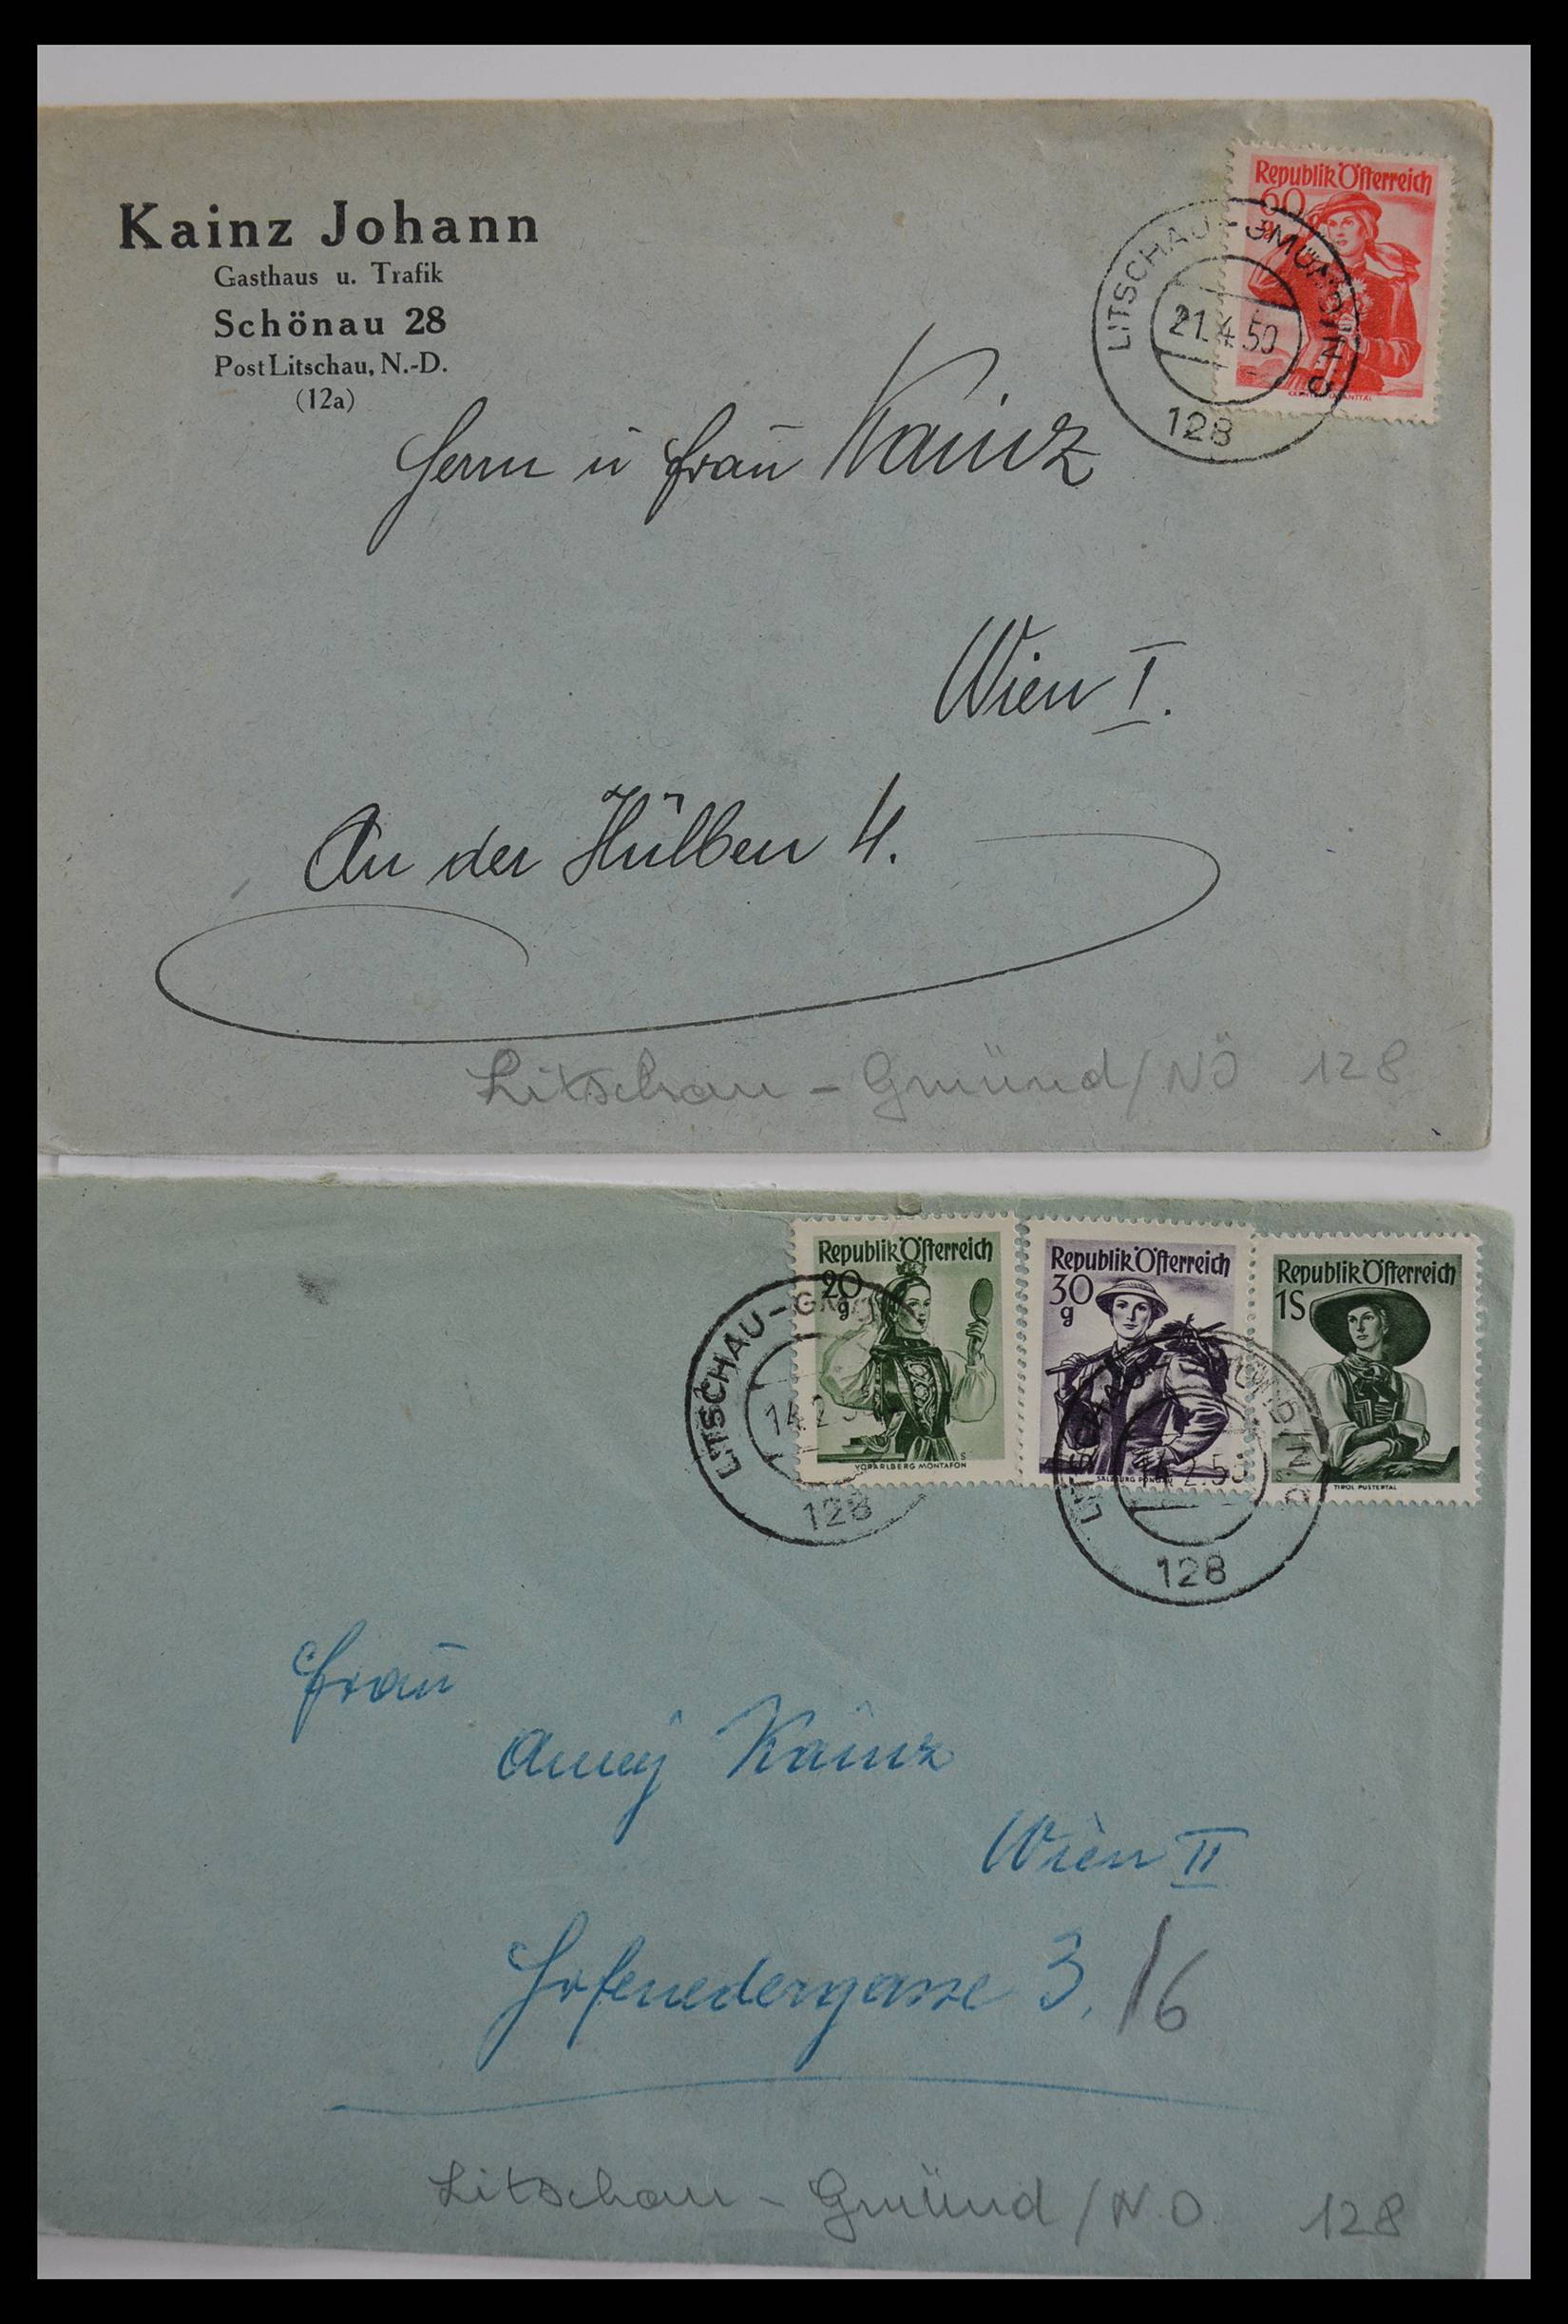 Kainz Johann
Gasthaus u. Trafik
Schönau 28
Post Litschau, N.-D.
(12a)
Republik Österreich
60
g
LITSCHAU-GMÜND IN Ö
21.4.50
128
Herrn u Frau Kainz
Wien I.
An der Hülben 4.
Litschau - Gmünd/NÖ 128
Republik Österreich
20
g
VORARLBERG MONTAFON
Republik Österreich
30
g
SALZBURG PONGAU
Republik Österreich
1S
TIROL PUSTERTAL
LITSCHAU-GM
14.2.5
128
14.2.55
128
Frau
Anny Kainz
Wien II
Hofenedergasse 3./6
Litschau - Gmünd/N.Ö. 128